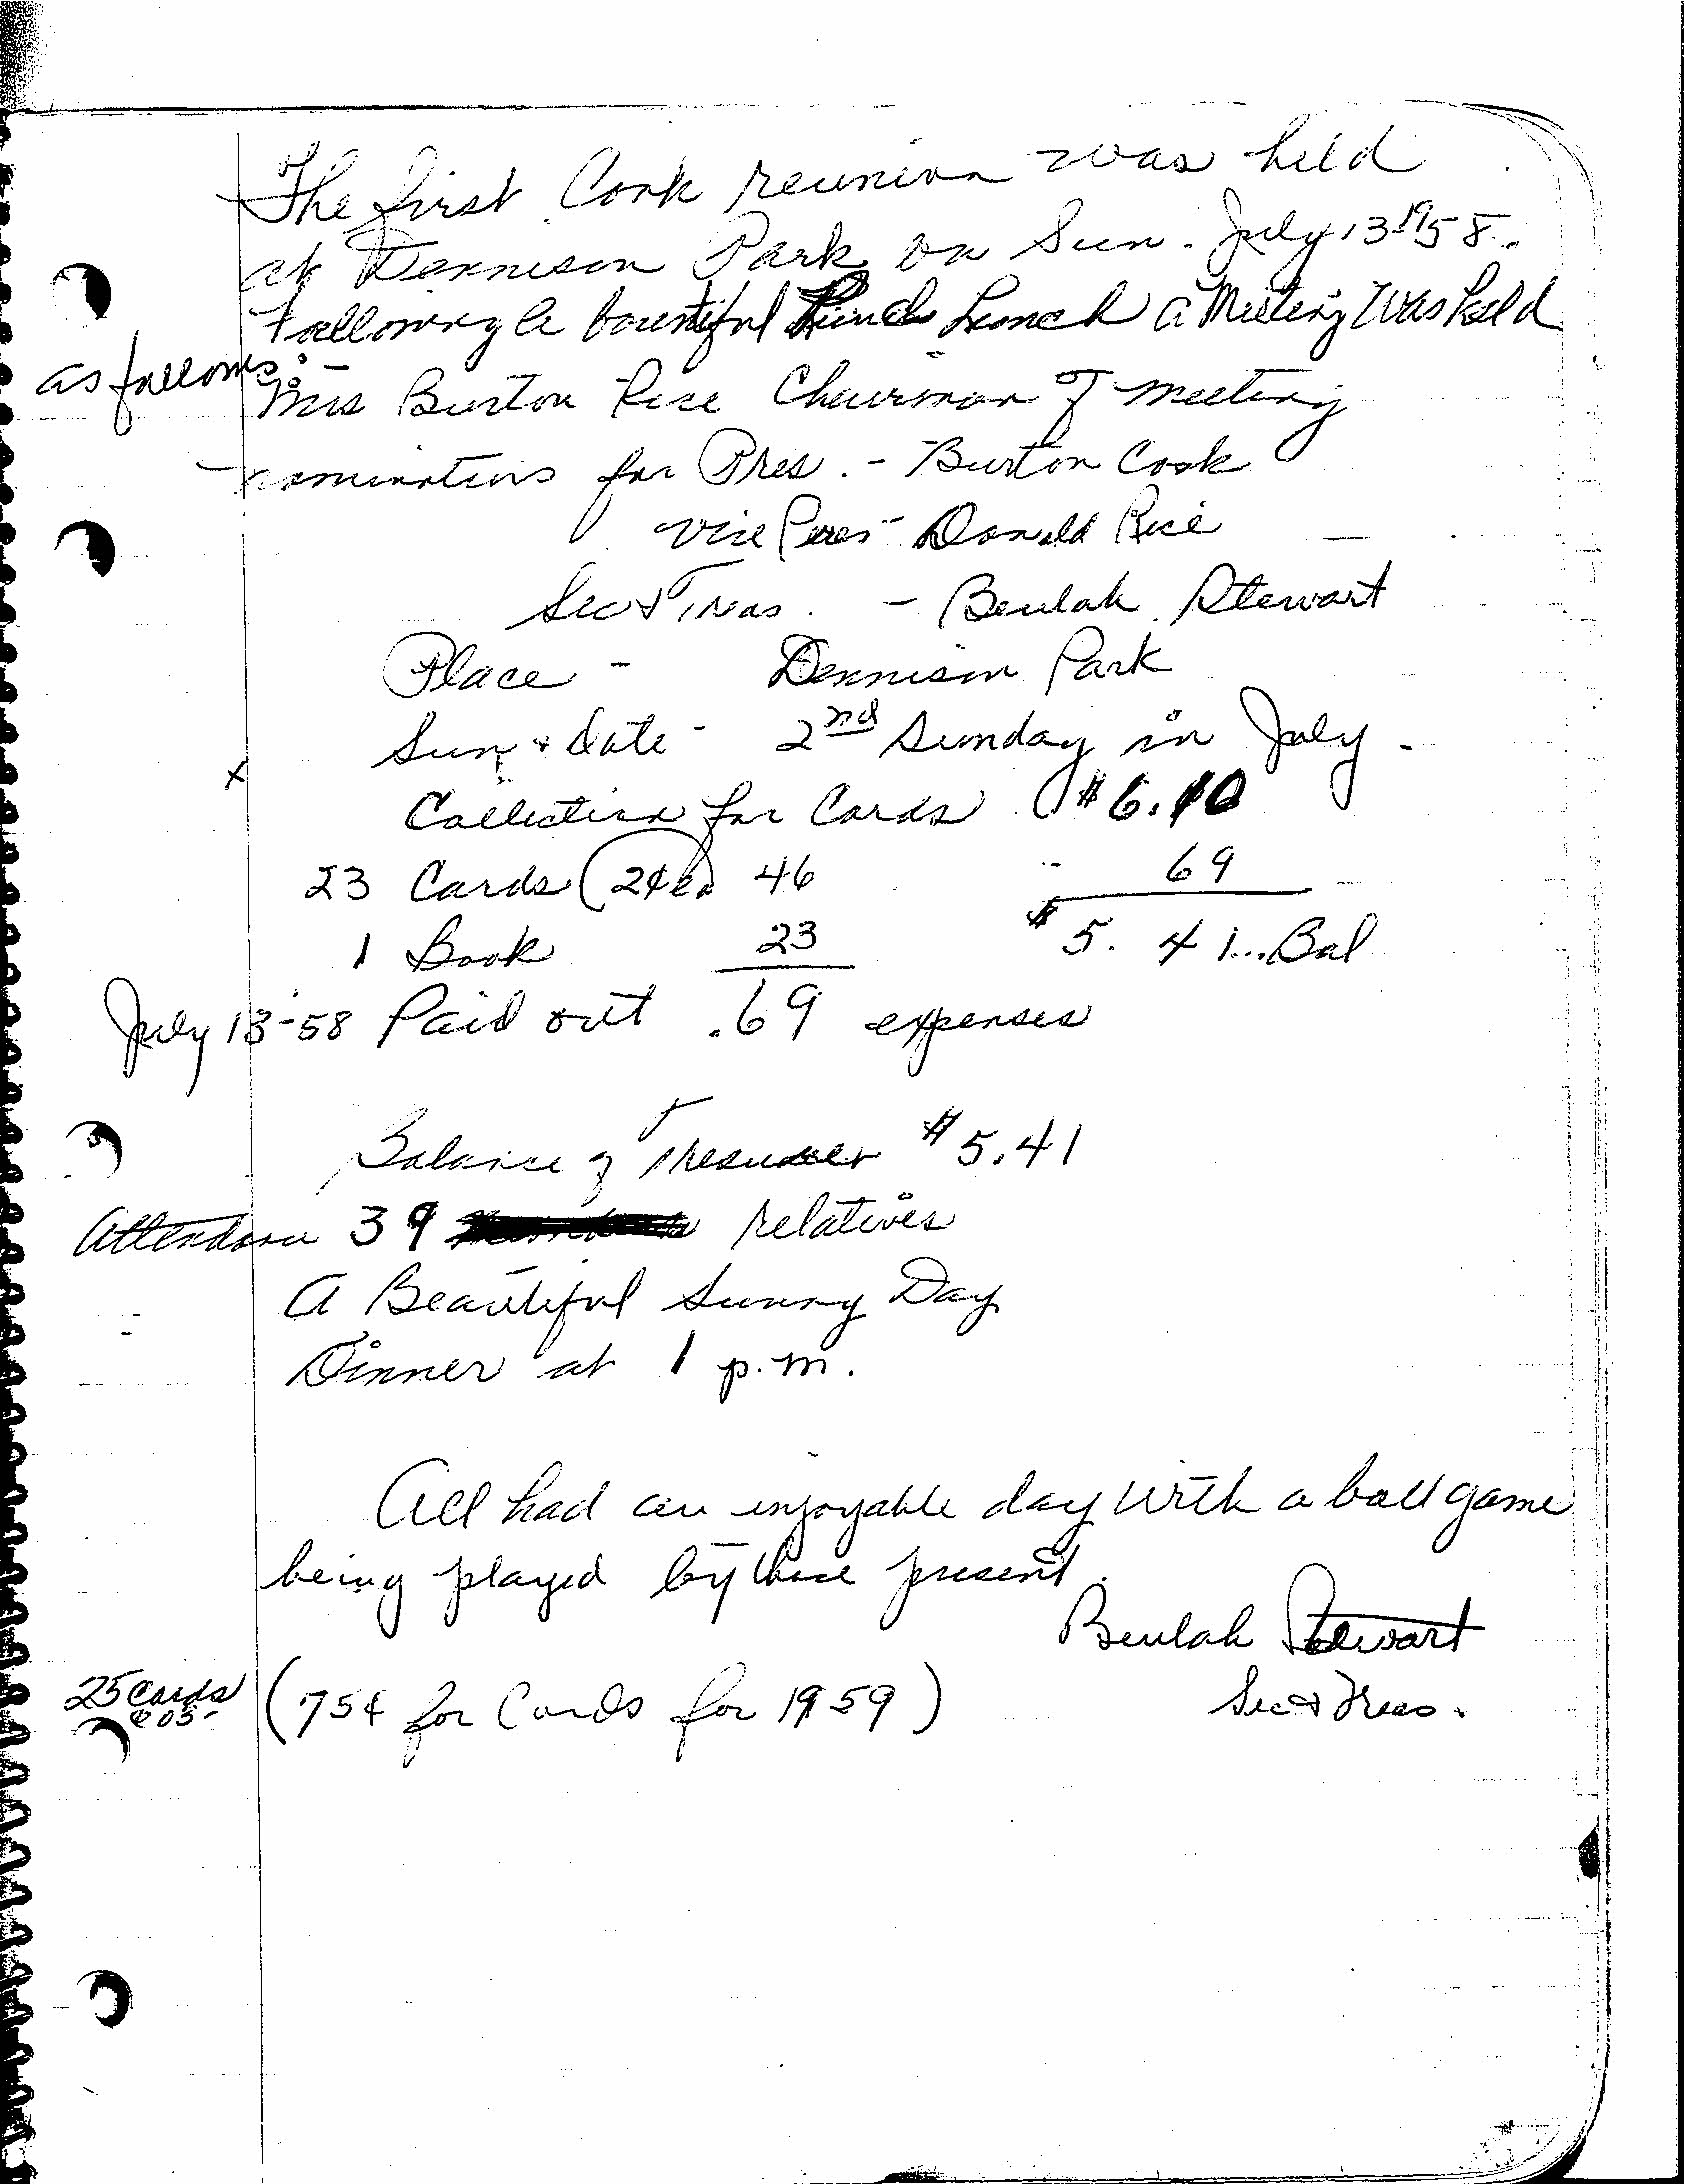 The first Cook reunion was held
at Dennison Park on Sun. July 13 1958.
Following a bountiful Lunch a Meeting Was held
as follows:-
Mrs Burton Rice Chairman of meeting
nominations for Pres. - Burton Cook
Vice Pres - Donald Rice
Sec & Treas. - Beulah Stewart
Place - Dennison Park
Sun & Date - 2nd Sunday in July -
x
Collection for Cards $6.10
23 Cards (2¢ ea) 46 69
1 Book 23 $5.41...Bal
July 13-58 Paid out .69 expenses
Balance of Tresurer $5.41
Attendance 39 relatives
A Beautiful Sunny Day
Dinner at 1 p.m.
All had an enjoyable day with a ball game
being played by those present.
Beulah Stewart
25 Cards (75¢ for Cards for 1959) Sec & Treas.
@ 03